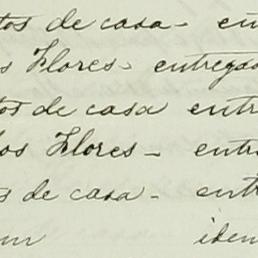 tos de casa - en
s Flores - entrega
tos de casa entr
los Flores - entr
s de casa - entr
um iden